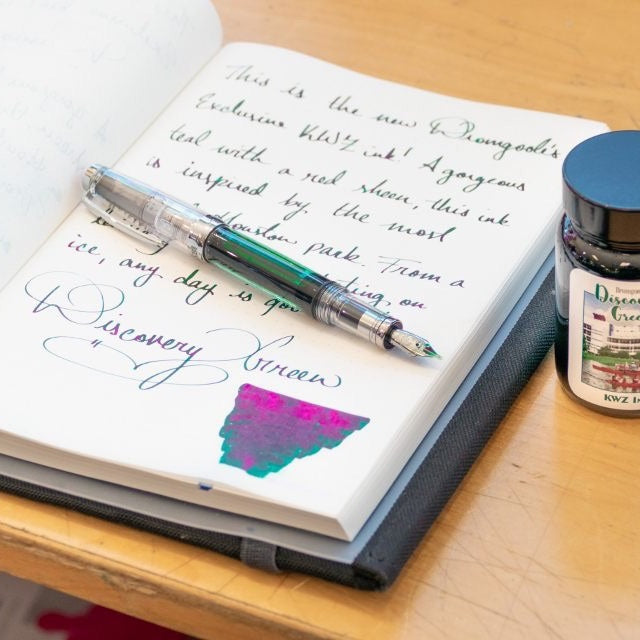 This is the new Dromgoole's
Exclusive KWZ ink! A gorgeous
teal with a red sheen, this ink
is inspired by the most
Houston park. From a
on
ice, any day is
Discovery Green
Disco
Gree
KWZ In